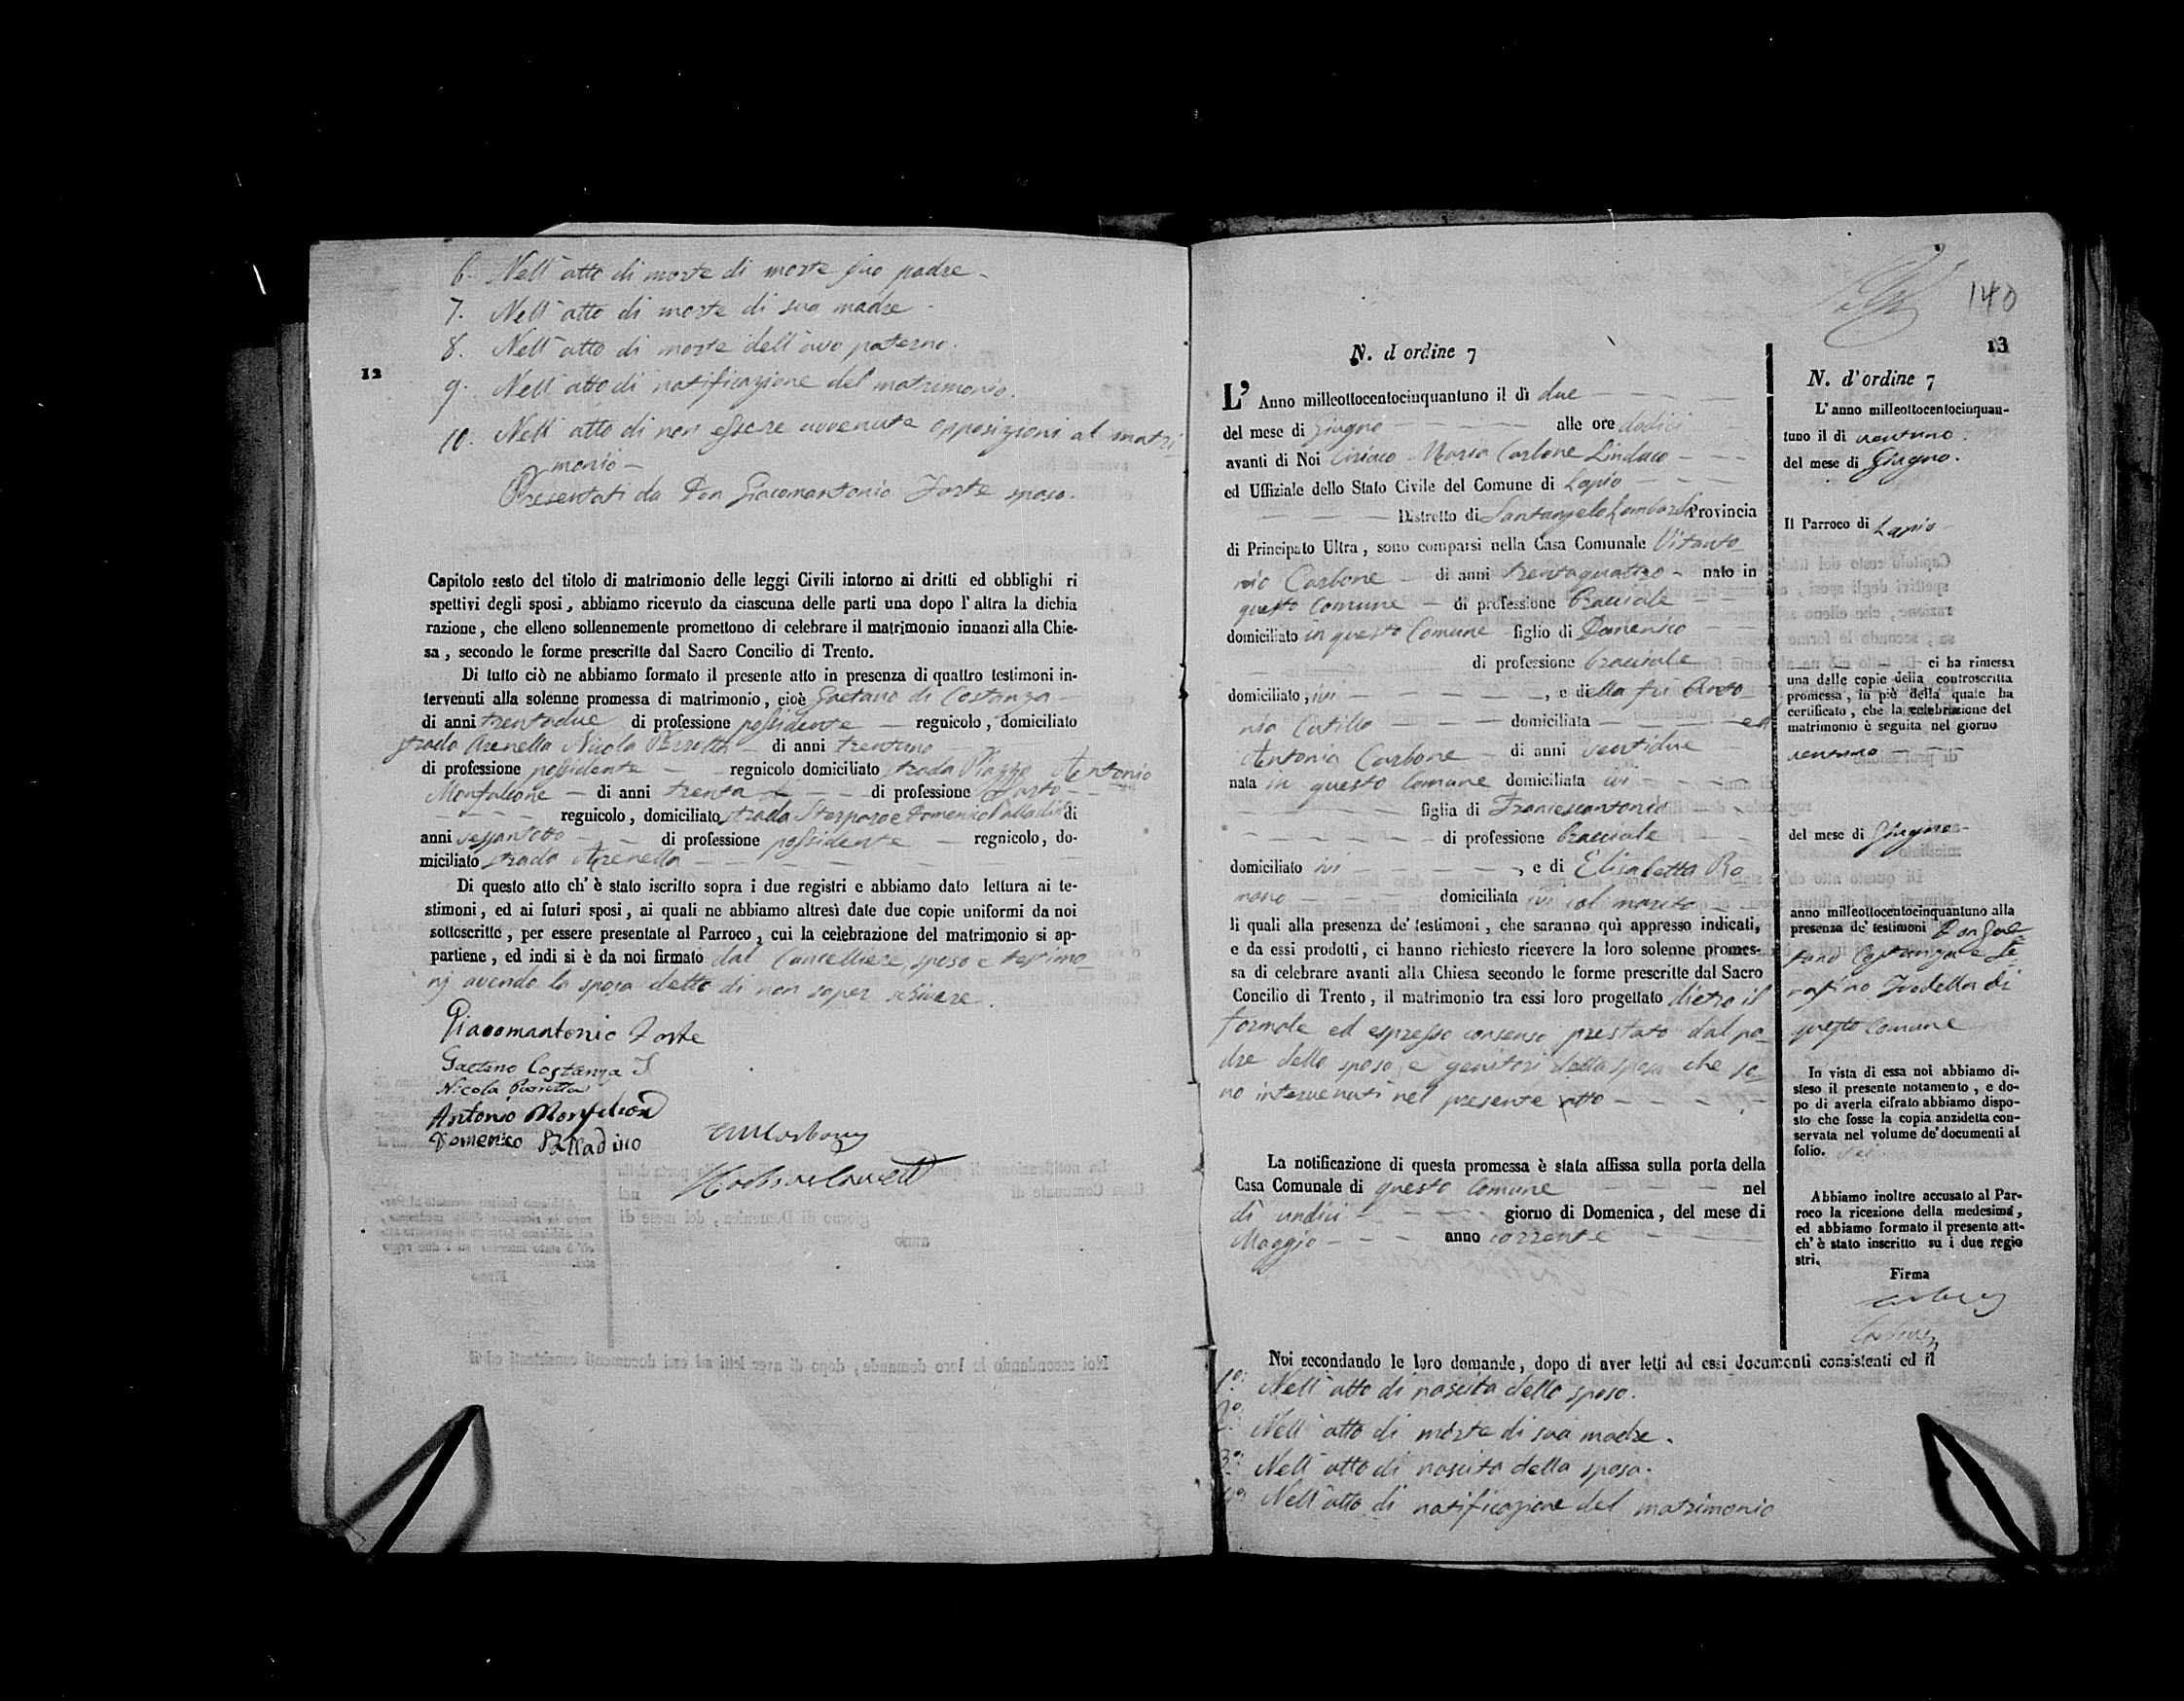 12
6. Nell'atto di morte di morte suo padre -
7. Nell'atto di morte di sua madre -
8. Nell'atto di morte dell'avo paterno.
9. Nell'atto di notificazione del matrimonio.
10. Nell'atto di non essere avvenute opposizioni al matri
monio -
Presentati da Don Giacomantonio Forte sposo.
Capitolo sesto del titolo di matrimonio delle leggi Civili intorno ai dritti ed obblighi ri
spettivi degli sposi, abbiamo ricevuto da ciascuna delle parti una dopo l'altra la dichia
razione, che elleno sollennemente promettono di celebrare il matrimonio innanzi alla Chie-
sa, secondo le forme prescritte dal Sacro Concilio di Trento.
Di tutto ciò ne abbiamo formato il presente atto in presenza di quattro testimoni in-
tervenuti alla solenne promessa di matrimonio, cioè Gaetano di Costanza -
di anni trentadue di professione possidente - regnicolo, domiciliato
strada Arenella Nicola - di anni trentuno
di professione possidente - regnicolo domiciliato strada Piazza Antonio
Monfalcone - di anni trenta - di professione Sarto -
regnicolo, domiciliato strada e Domenico Palladino di
anni sessantotto - di professione possidente - regnicolo, do-
miciliato strada Arenella -
Di questo atto ch'è stato iscritto sopra i due registri e abbiamo dato lettura ai te-
stimoni, ed ai futuri sposi, ai quali ne abbiamo altresì date due copie uniformi da noi
sottoscritte, per essere presentate al Parroco, cui la celebrazione del matrimonio si ap-
partiene, ed indi si è da noi firmato dal Cancelliere, sposo e testimo-
nj avendo la sposa detto di non saper scrivere.
Giacomantonio Forte
Gaetano Costanza
Nicola
Antonio Monfalcon
Domenico Palladino
140
13
N. d ordine 7
L' Anno milleottocentocinquantuno il dì due
del mese di Giugno - alle ore dodici
avanti di Noi Ciriaco Maria Carbone Sindaco -
ed Uffiziale dello Stato Civile del Comune di Lapio -
Distretto di Santangelo Lombardi Provincia
di Principato Ultra, sono comparsi nella Casa Comunale Vitanto
nio Carbone di anni trentaquattro - nato in
questo Comune - di professione Bracciale -
domiciliato in questo Comune figlio di Domenico -
di professione bracciale
domiciliato, ivi -, e della fu Anto
nia Catillo - domiciliata - ed
Antonia Carbone - di anni ventidue -
nata in questo Comune domiciliata ivi -
figlia di Francescantonio -
di professione Bracciale
domiciliato ivi -, e di Elisabetta Ro
mano - domiciliata ivi col marito -
li quali alla presenza de' testimoni, che saranno quì appresso indicati,
e da essi prodotti, ci hanno richiesto ricevere la loro solenne promes-
sa di celebrare avanti alla Chiesa secondo le forme prescritte dal Sacro
Concilio di Trento, il matrimonio tra essi loro progettato dietro il
formale ed espresso consenso prestato dal pa-
dre dello sposo, e genitori della sposa che so-
no intervenuti nel presente atto -
La notificazione di questa promessa è stata affissa sulla porta della
Casa Comunale di questo Comune - nel
dì undici - giorno di Domenica, del mese di
Maggio - anno corrente
Noi secondando le loro domande, dopo di aver letti ad essi documenti consistenti ed il
1°: Nell'atto di nascita dello sposo.
2°: Nell'atto di morte di sua madre.
3°: Nell'atto di nascita della sposa.
4°: Nell'atto di notificazione del matrimonio
N. d'ordine 7
L'anno milleottocentocinquan-
tuno il di ventuno.
del mese di Giugno.
Il Parroco di Lapio -
ci ha rimessa
una delle copie della controscritta
promessa, in piè della quale ha
certificato, che la celebrazione del
matrimonio è seguita nel giorno
ventuno -
del mese di Giugno -
anno milleottocentocinquantuno alla
presenza de' testimoni Don Gae-
tano Costanza e Se-
rafino di
questo Comune
In vista di essa noi abbiamo di-
steso il presente notamento, e do-
po di averla cifrato abbiamo dispo-
sto che fosse la copia anzidetta con-
servata nel volume de' documenti al
folio.
Abbiamo inoltre accusato al Par-
roco la ricezione della medesima,
ed abbiamo formato il presente att-
ch'è stato inscritto su i due regio
stri.
Firma